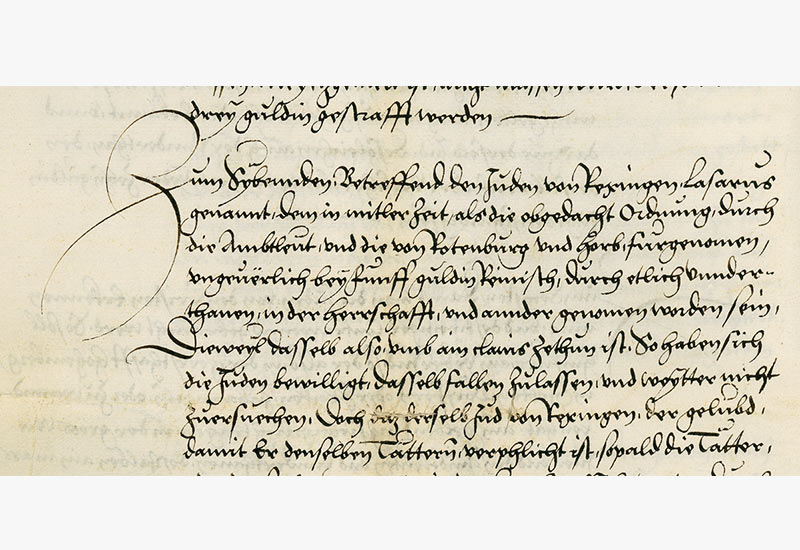 drey guldin gestrafft werden
Zum Sybennden, Betreffend den Juden von Rexingen, Lasarus
genannt, dem in mitler Zeit, als die obgedacht Ordnung, durch
die Ambtleut, und die von Rotenburg vnd Horb, furgenomen,
vngeuerlich bey funff guldin Reinisch, durch etlich vnnder-
thanen, in der Herrschafft, vnd annder genomen worden sein,
Dieweyl dasselb also, vmb am clains Zethun ist, So haben sich
die Juden bewilligt, dasselb fallen zulassen, vnd weytter nicht
zuersuechen, Doch daz derselb Jud von Rexingen, der gelübd,
damit Er denselben Tättern, verphlicht ist, sopald die Tätter,